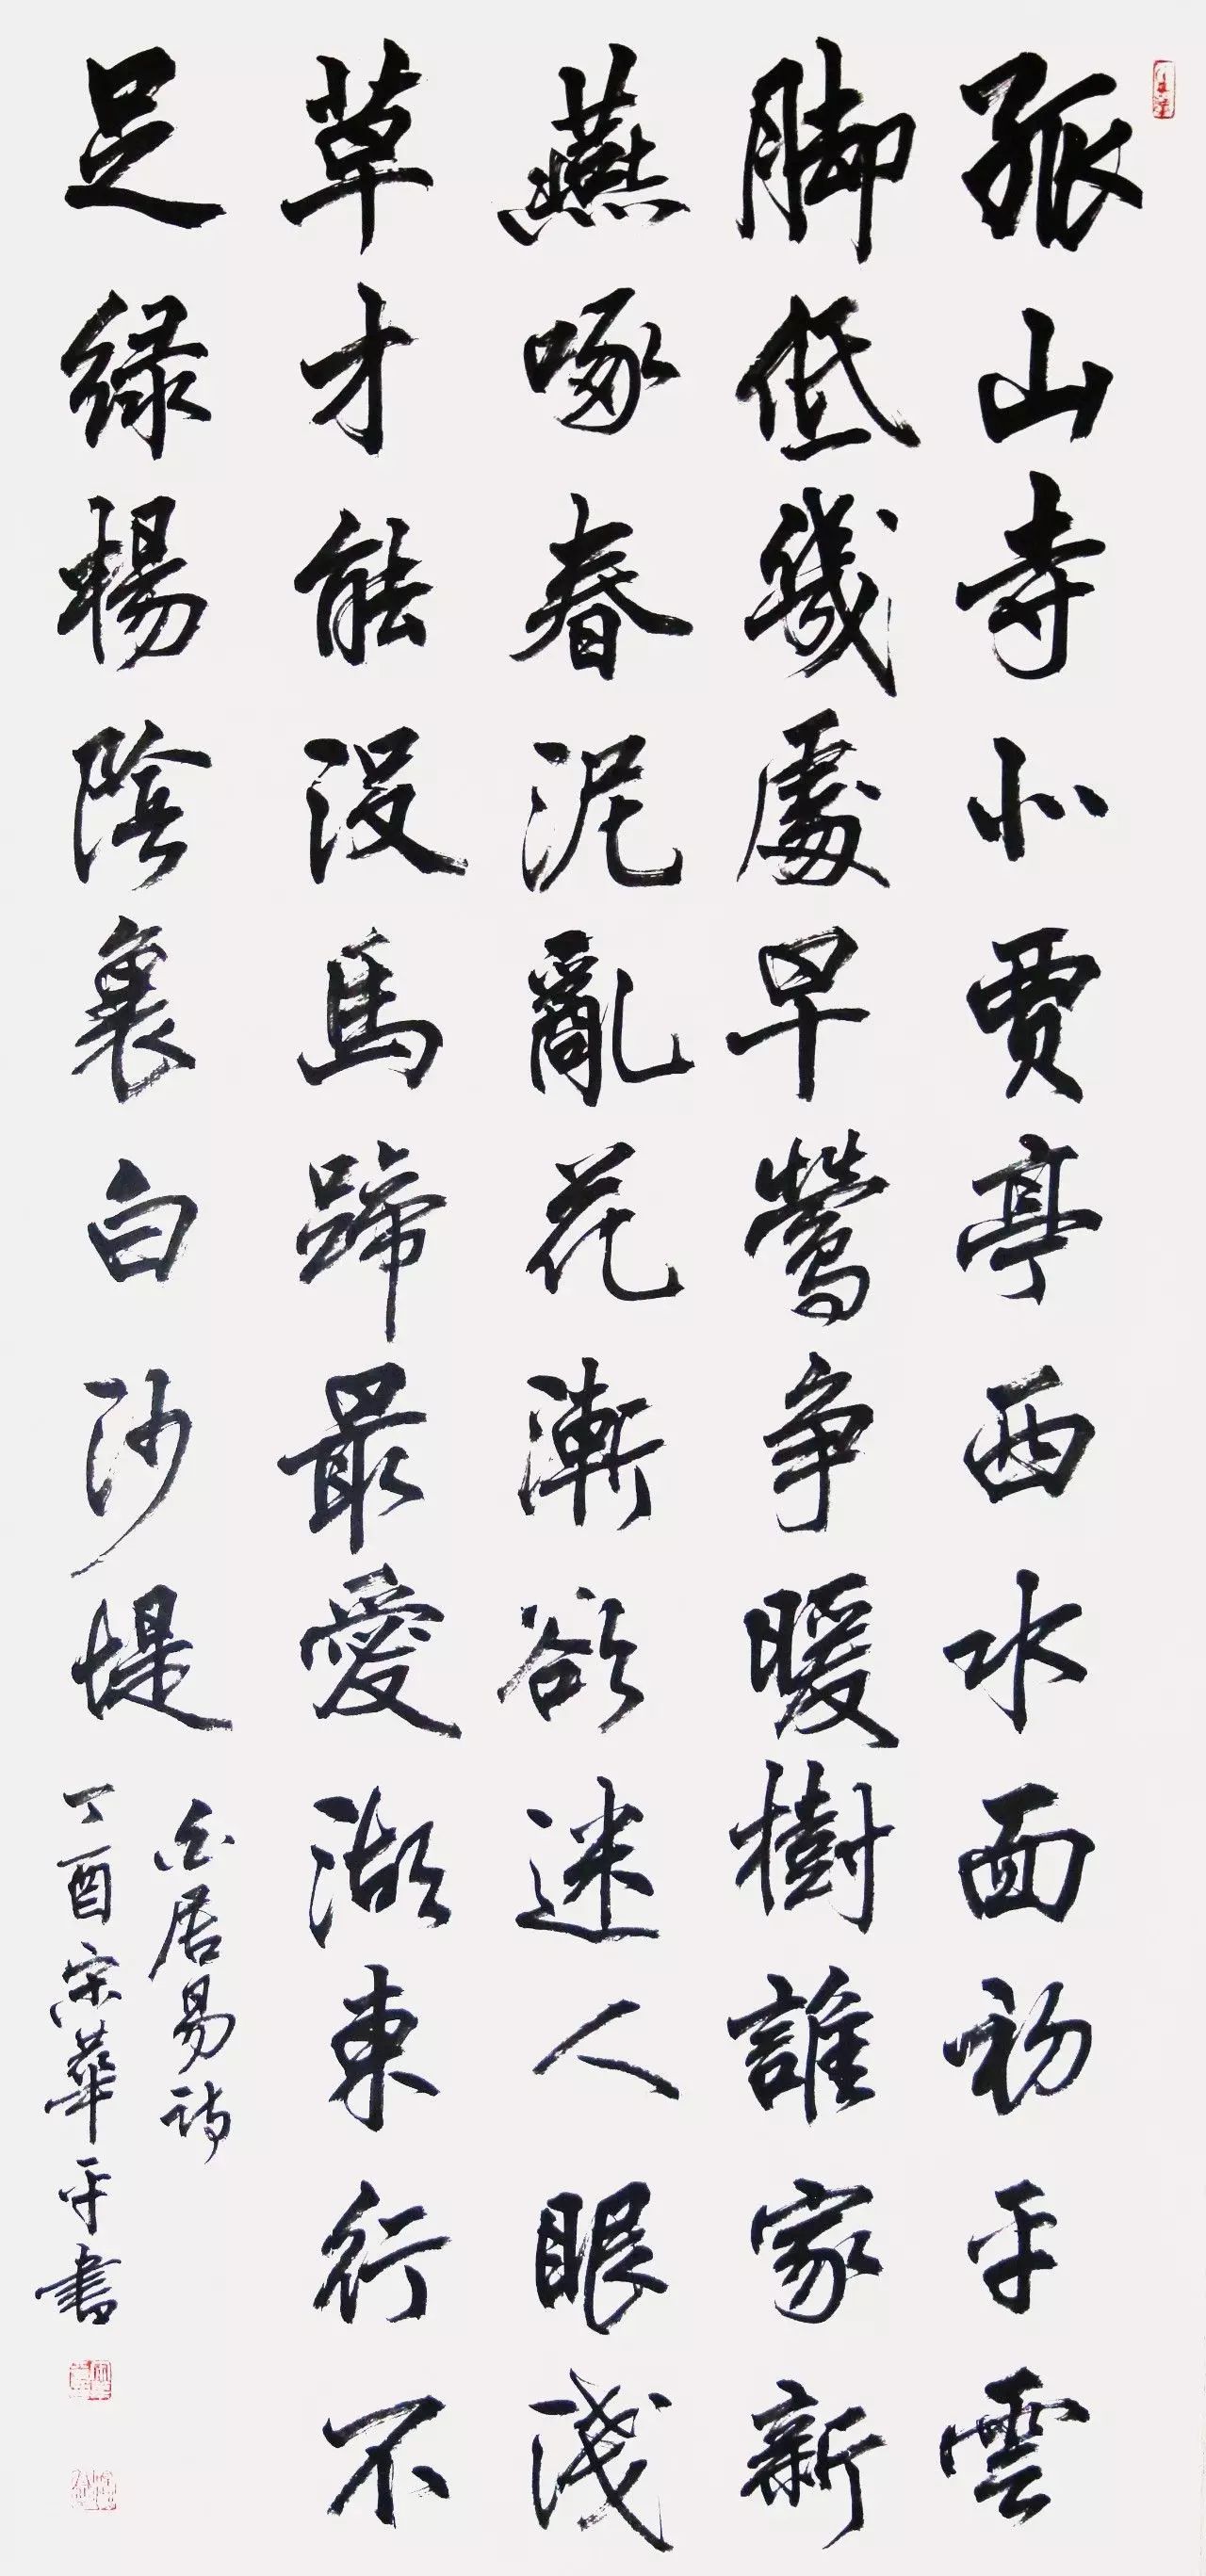 孤山寺北賈亭西水面初平雲
脚低幾處早鶯争暖樹誰家新
燕啄春泥亂花漸欲迷人眼淺
草才能没馬蹄最愛湖東行不
足緑楊陰裏白沙堤
白居易詩
丁酉宗華平書